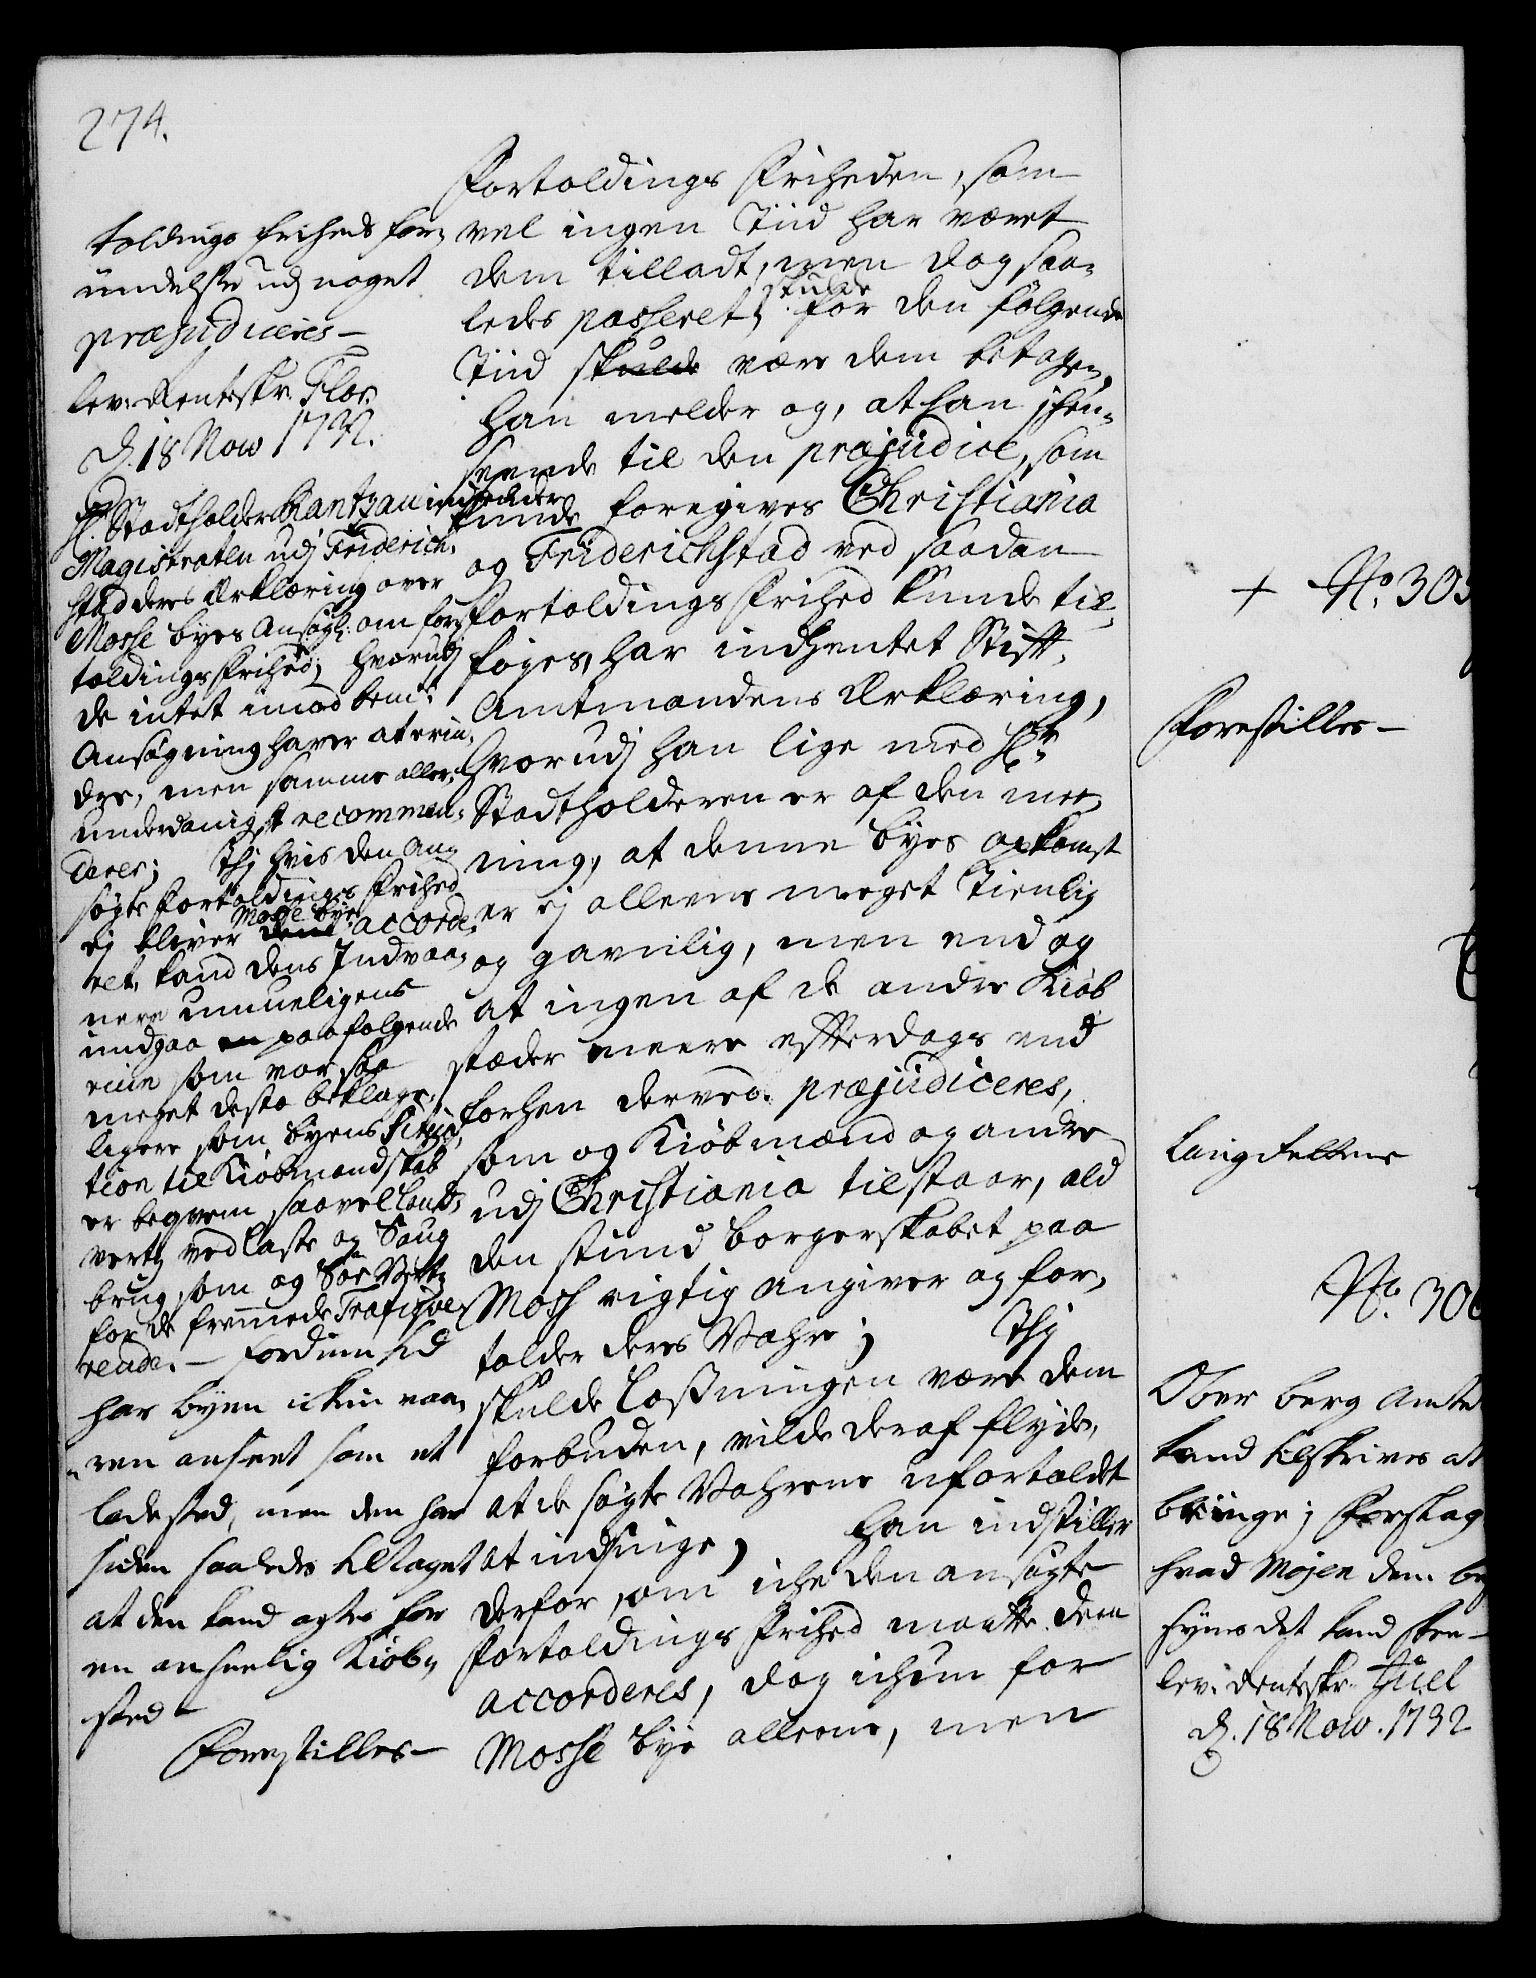 274.
toldings friheds for,
undelste udj noget
præjudiceres-
lev: Rentskr. Flor.
d. 18 Nov 1732.
Hr. Stadtholder Rantzau indsender
Magistraten udj Friderich,
stad deres Erklæring over
Mosse byes Ansøgl: om for,
toldings frihed; hvorudj
de intet imod bemt:
Ansøgning haver at erin,
dre, men samme aller,
underdanigst recommen,
derer; Thj hvis den an,
søgte fortoldings frihed
ej bliver Mosse bye accorde,
ret, kand dens Indvaa,
nere umueligens
undgaa paafølgende
ruin som var saa
meget desto beklage,
ligere, som byens Situa,
tion til Kiøbmandskab
er beqvem, saavel Land,
verts ved Laste og Saug
brug, som og Søe Verts
for de fremmede Trafiqve,
rende. - fordum tid
har byen ickun vaa,
ren anseet som et
ladested, men den har
siden saaledes tiltaget
at den kand agtes for
en anseelig Kiøb,
sted -
Forestilles-
Fortoldings Friheden, som
vel ingen Tiid har været
dem tilladt, men dog saa,
ledes passeret, skulde for den følgende
Tiid skulde være dem betagen,
han melder og, at han i hen,
seende til den præjudice, som
kunde foregives Christiania
og Friderichstad ved saadan
fortoldings frihed kunde til,
føyes, har indhentet Stift,
Amtmandens Erklæring,
hvorudj han lige med Hr.
Stadtholderen er af den mee,
ning, at denne byes opkomst
er ej alleene meget tienlig
og gavnlig, men end og
at ingen af de andre Kiøb
stæder meere efterdags end
forhen derved præjudiceres,
som og Kiøbmænd og andre
udj Christiania tilstaar, ald
den stund borgerskabet paa
Moss rigtig angiver og for,
tolder deres Vahre; Thj
skulde Loßningen være dem
forbuden, vilde deraf flyde,
at de søgte Vahrene ufortoldet
at indsnige, han indstiller
derfor, om iche den ansøgte
Fortoldings frihed maatte dem
accorderes, dog ichun for
Mosse bye alleene, men
+ No. 305
Forestilles-
Langfeldtene
No. 306
Ober berg Amtet
kand tilskrives at
bringe; Forslag
hvad Mojen dem be
synes det kand skee-
lev: Rentskr. Juel
d. 18 Nov. 1732